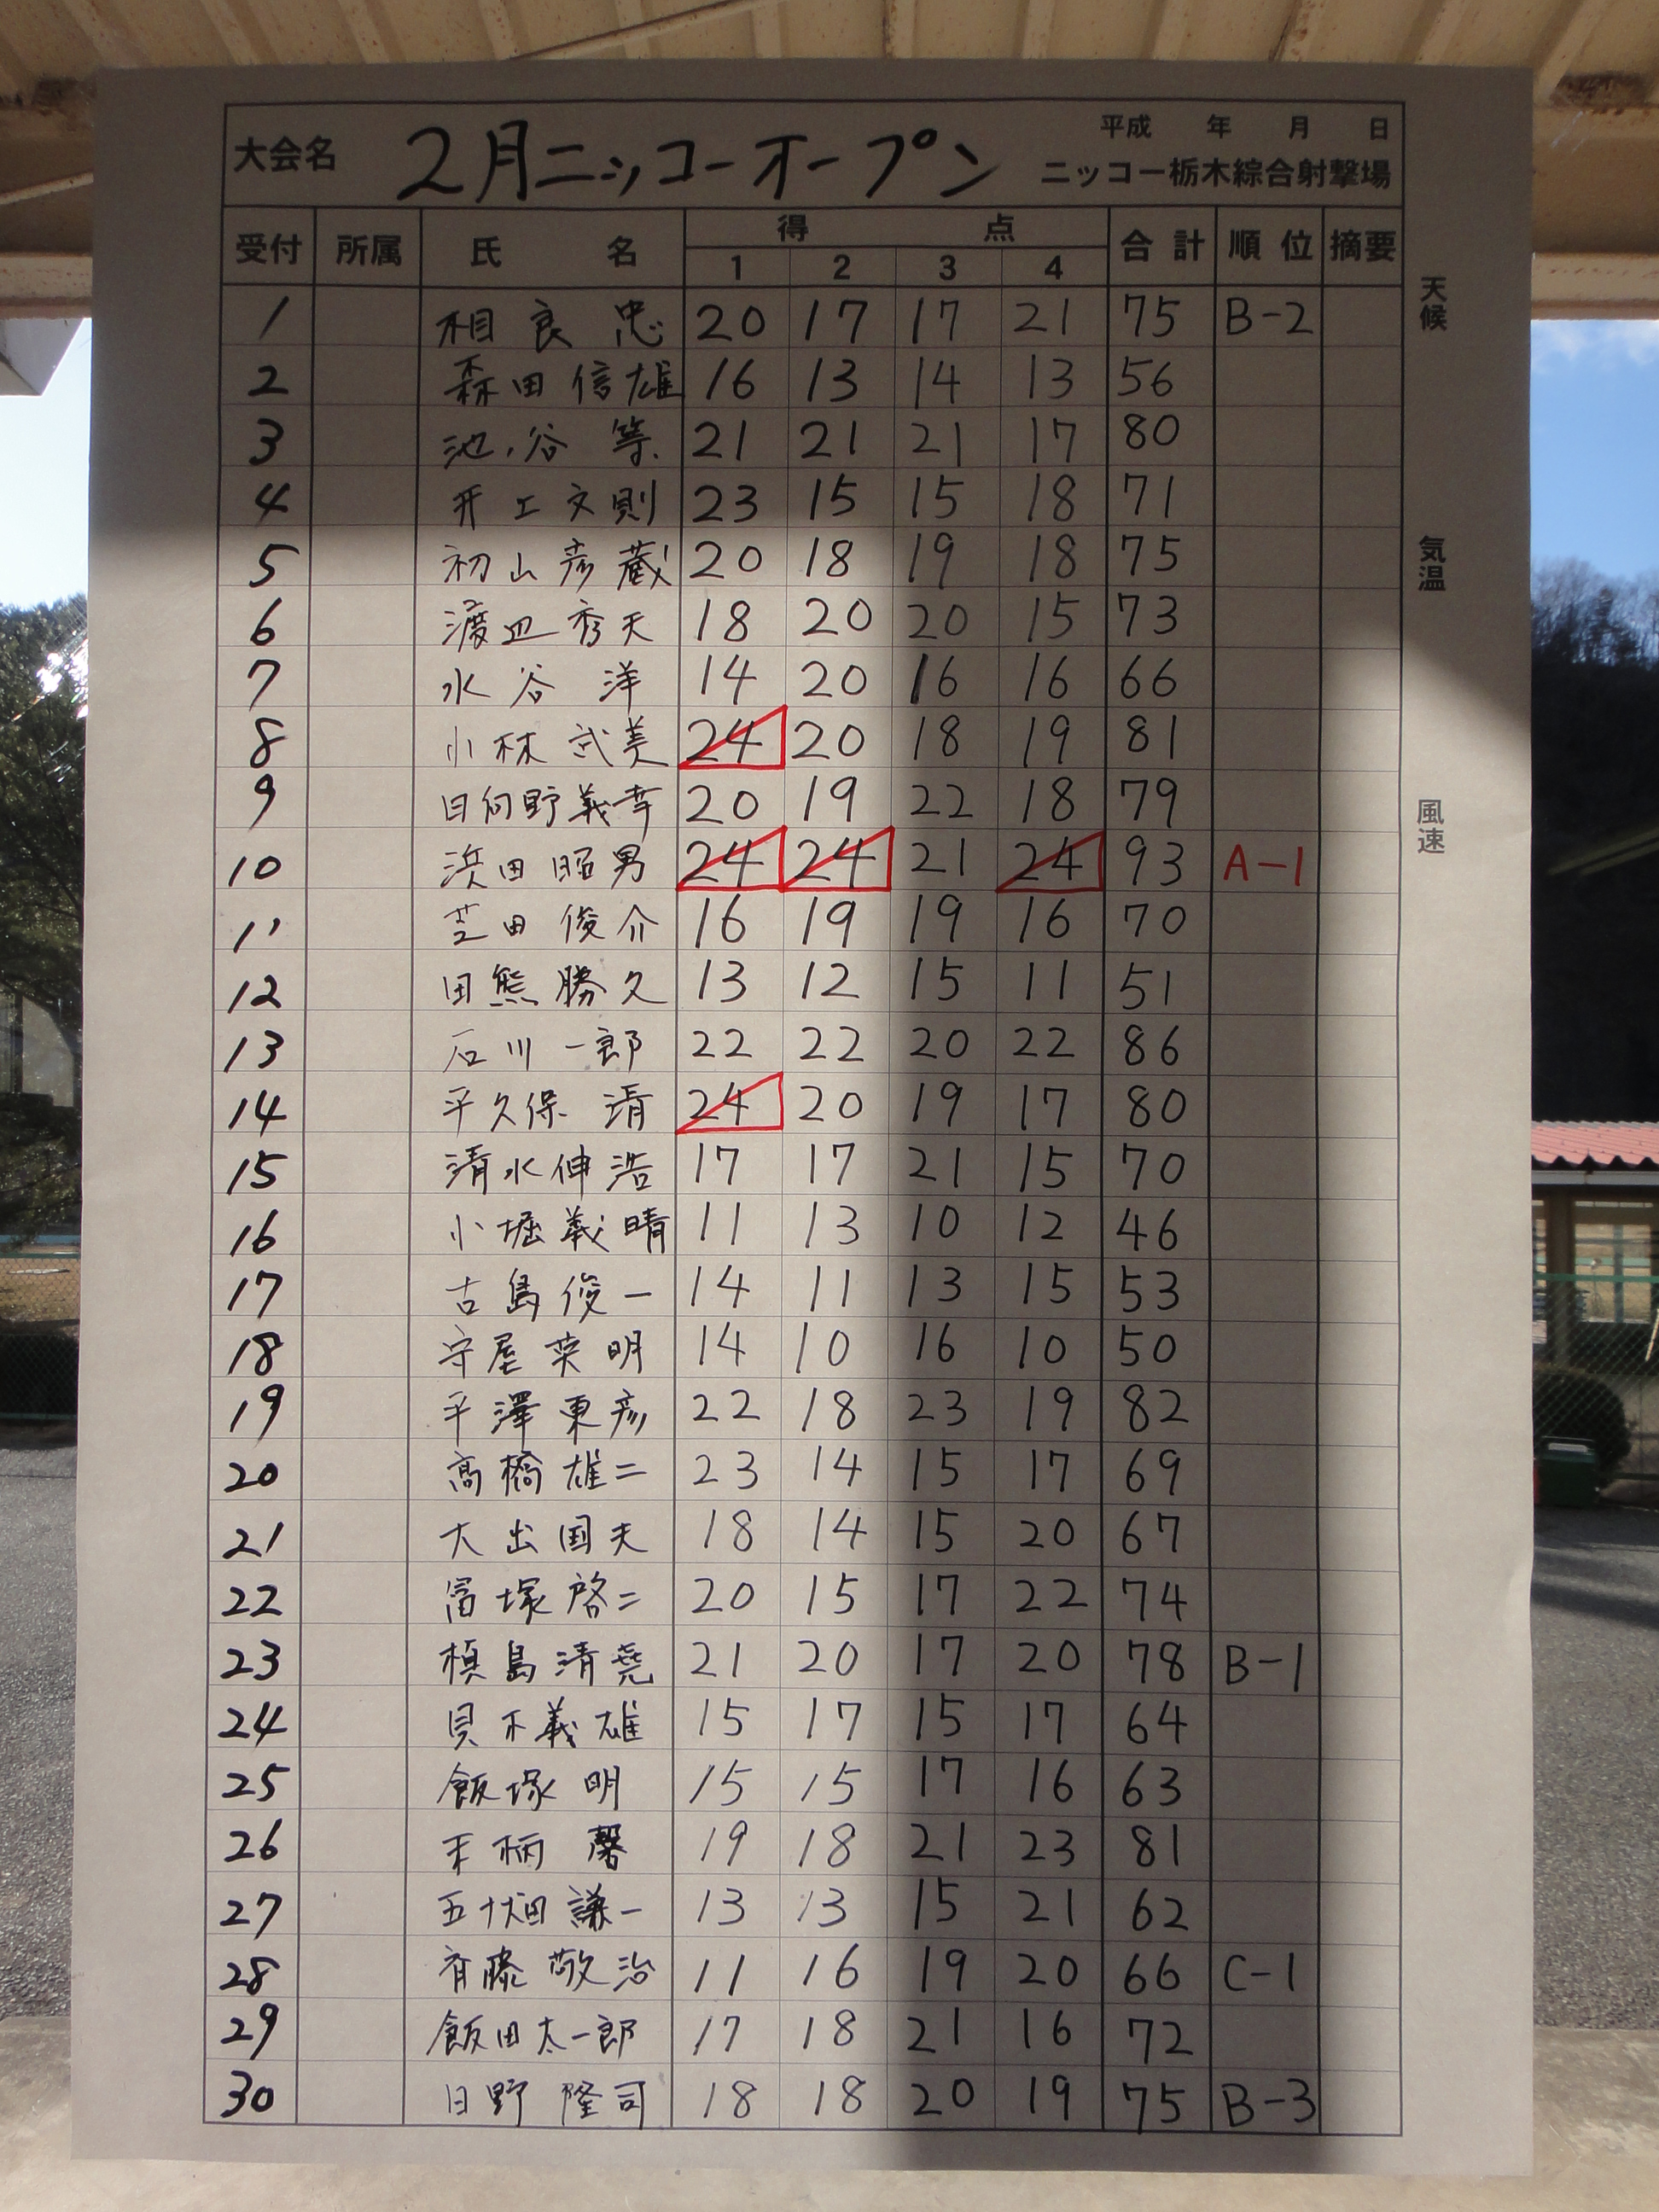 平成 年 月 日
大会名 2月ニッコーオープン ニッコー栃木綜合射撃場
受付 所属 氏名 得点 合計 順位 摘要
1 2 3 4
1 相良忠 20 17 17 21 75 B-2
2 森田信雄 16 13 14 13 56
3 池谷等 21 21 21 17 80
4 井上文則 23 15 15 18 71
5 初山彦蔵 20 18 19 18 75
6 渡辺秀夫 18 20 20 15 73
7 水谷洋 14 20 16 16 66
8 小林武美 24 20 18 19 81
9 日向野義幸 20 19 22 18 79
10 浜田昭男 24 24 21 24 93 A-1
11 芝田俊介 16 19 19 16 70
12 田熊勝久 13 12 15 11 51
13 石川一郎 22 22 20 22 86
14 平久保清 24 20 19 17 80
15 清水伸浩 17 17 21 15 70
16 小堀義晴 11 13 10 12 46
17 古島俊一 14 11 13 15 53
18 守屋英明 14 10 16 10 50
19 平澤東彦 22 18 23 19 82
20 高橋雄二 23 14 15 17 69
21 大出国夫 18 14 15 20 67
22 冨塚啓二 20 15 17 22 74
23 槙島清尭 21 20 17 20 78 B-1
24 貝木義雄 15 17 15 17 64
25 飯塚明 15 15 17 16 63
26 柄馨 19 18 21 23 81
27 五十畑謙一 13 13 15 21 62
28 斉藤敬治 11 16 19 20 66 C-1
29 飯田太一郎 17 18 21 16 72
30 日野隆司 18 18 20 19 75 B-3
天候
気温
風速